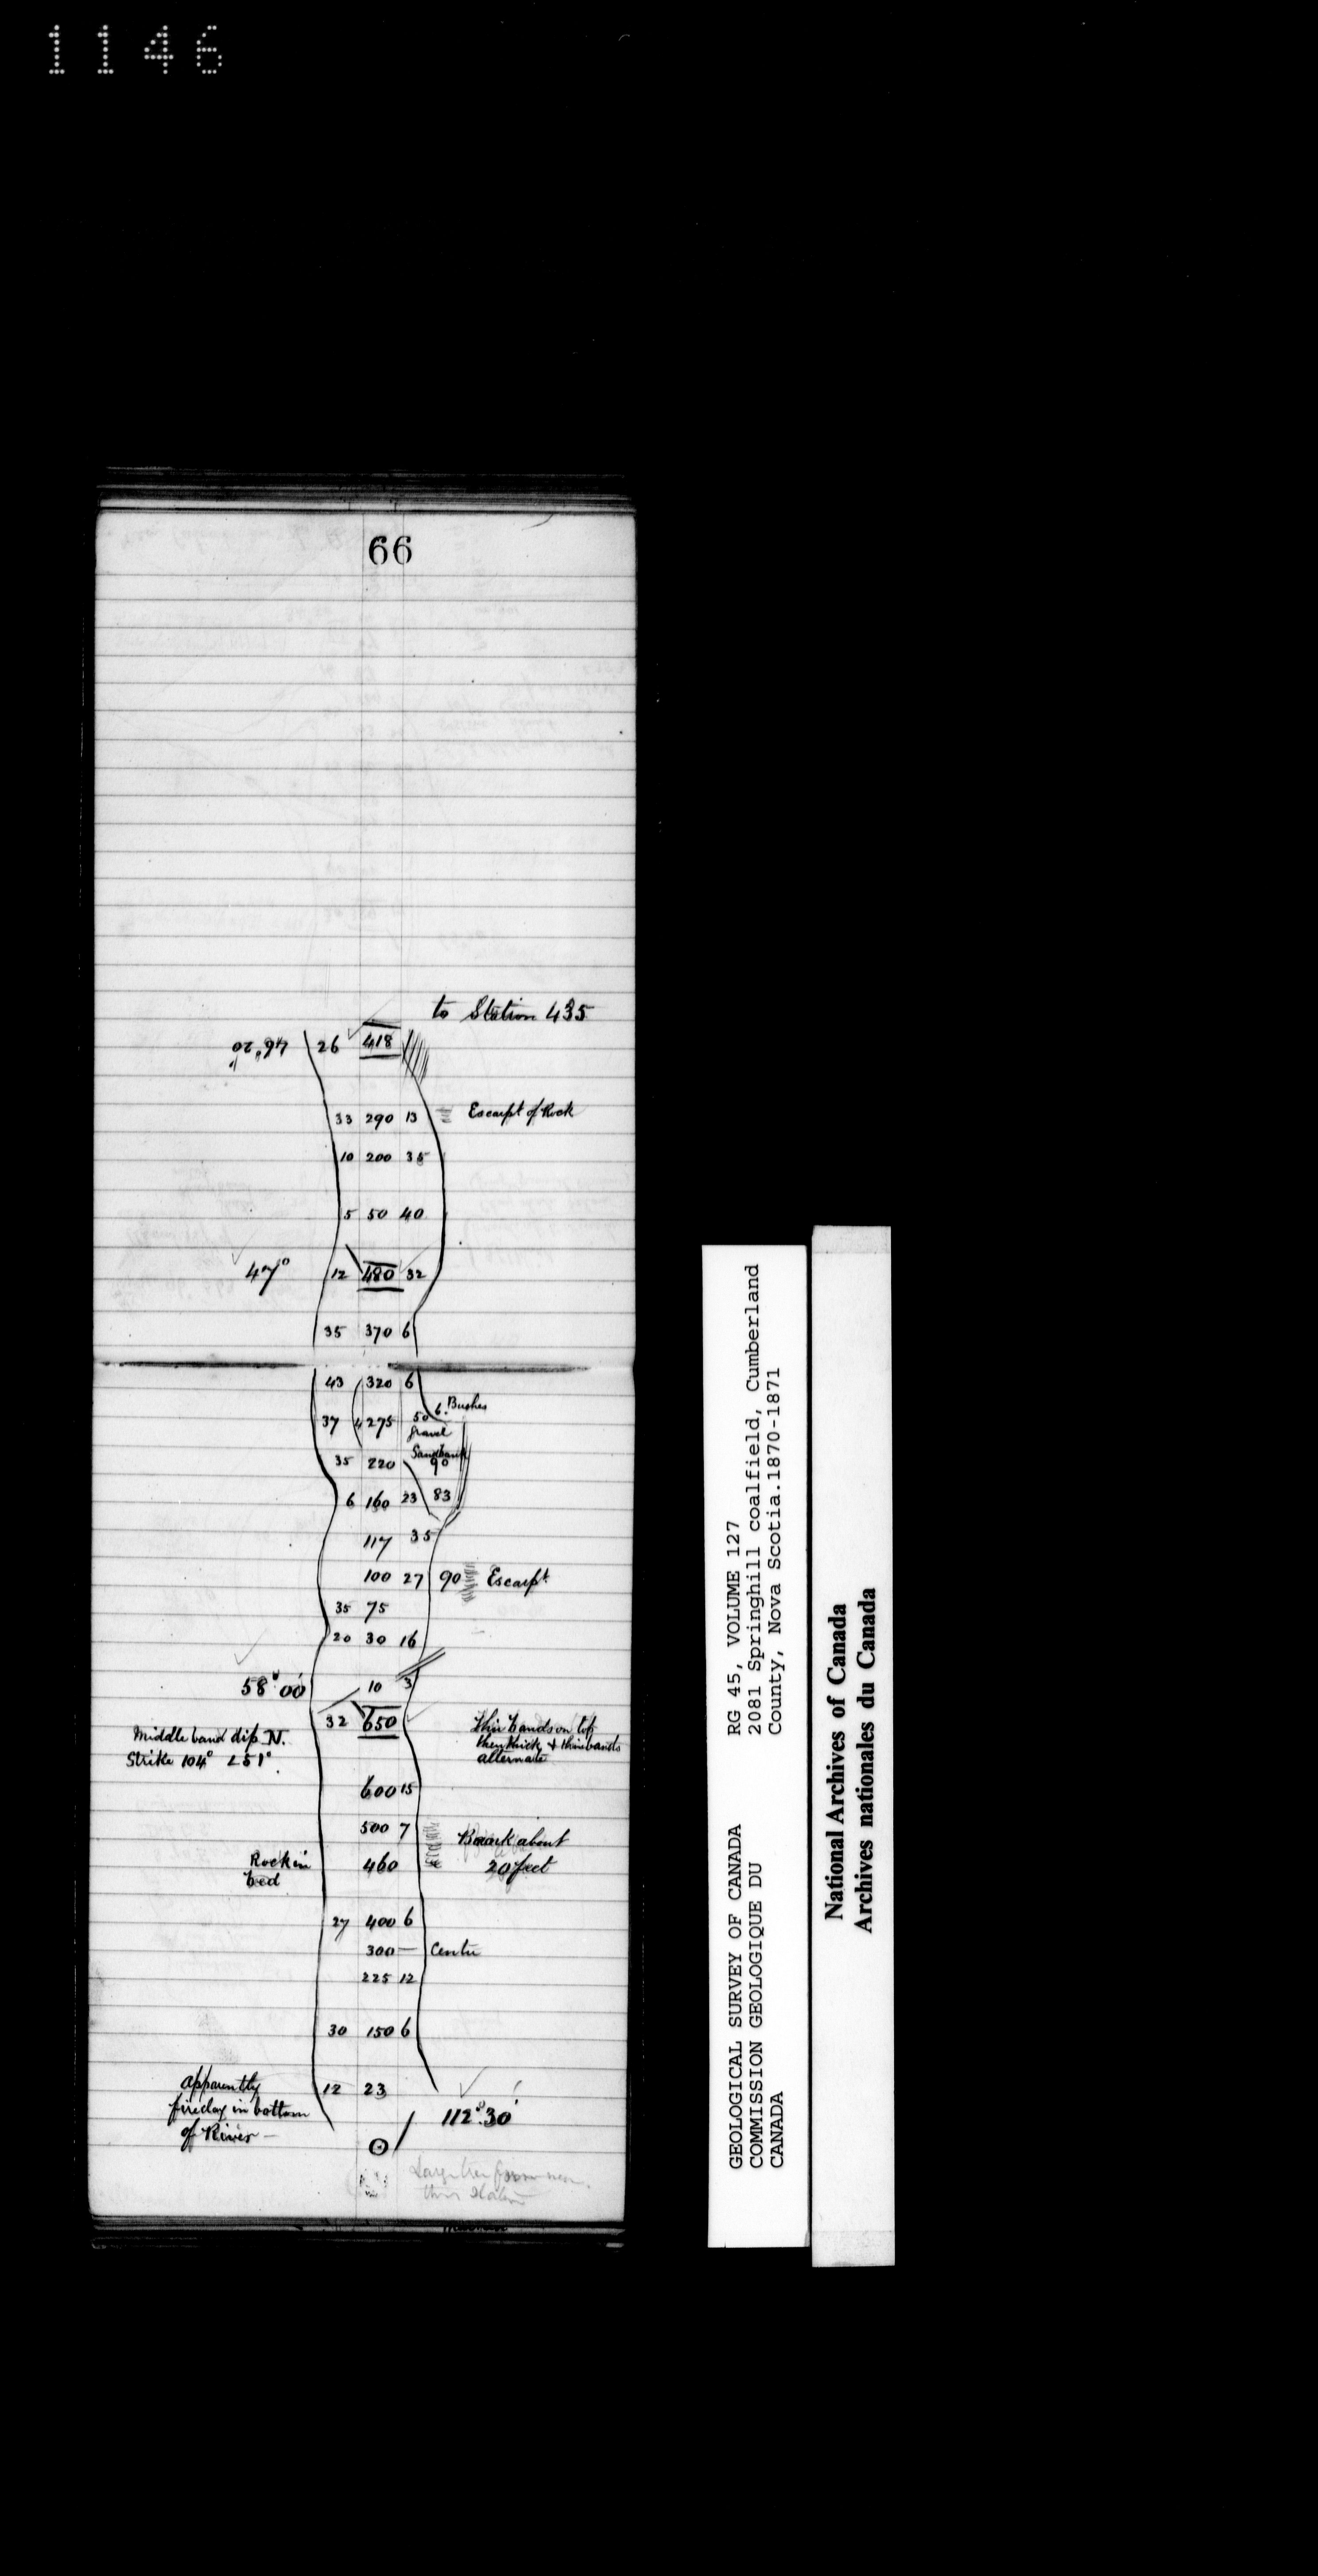 1146
66
to Station 435
46°20' 26 418
33 290 13 Escarpt of Rock
10 200 35
5 50 40
47° 12 480 32
35 370 6
43 320 6
37 4 275 50 6. Bushes
gravel
Sandbank
35 220 90
6 160 23 83
117 35
100 27 90 Escarpt
35 75
20 30 16
58°00' 10 3
32 650
Middle band dip N.
Strike 104° ∠51°.
Thin bands on top
then thick & thin bands
alternate
600 15
500 7
Bank about
20 feet
Rock in
bed
460
27 400 6
300 — Centre
225 12
30 150 6
12 23
apparently
fireclay in bottom
of River —
112°30'
this Station
GEOLOGICAL SURVEY OF CANADA
COMMISSION GEOLOGIQUE DU
CANADA
RG 45, VOLUME 127
2081 Springhill coalfield, Cumberland
County, Nova Scotia.1870-1871
National Archives of Canada
Archives nationales du Canada